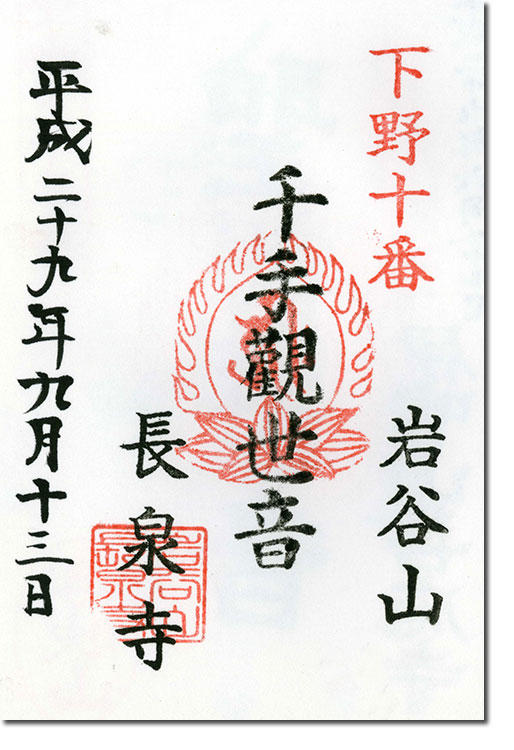 下野十番
岩谷山
千手觀世音
長泉寺
平成二十九年九月十三日